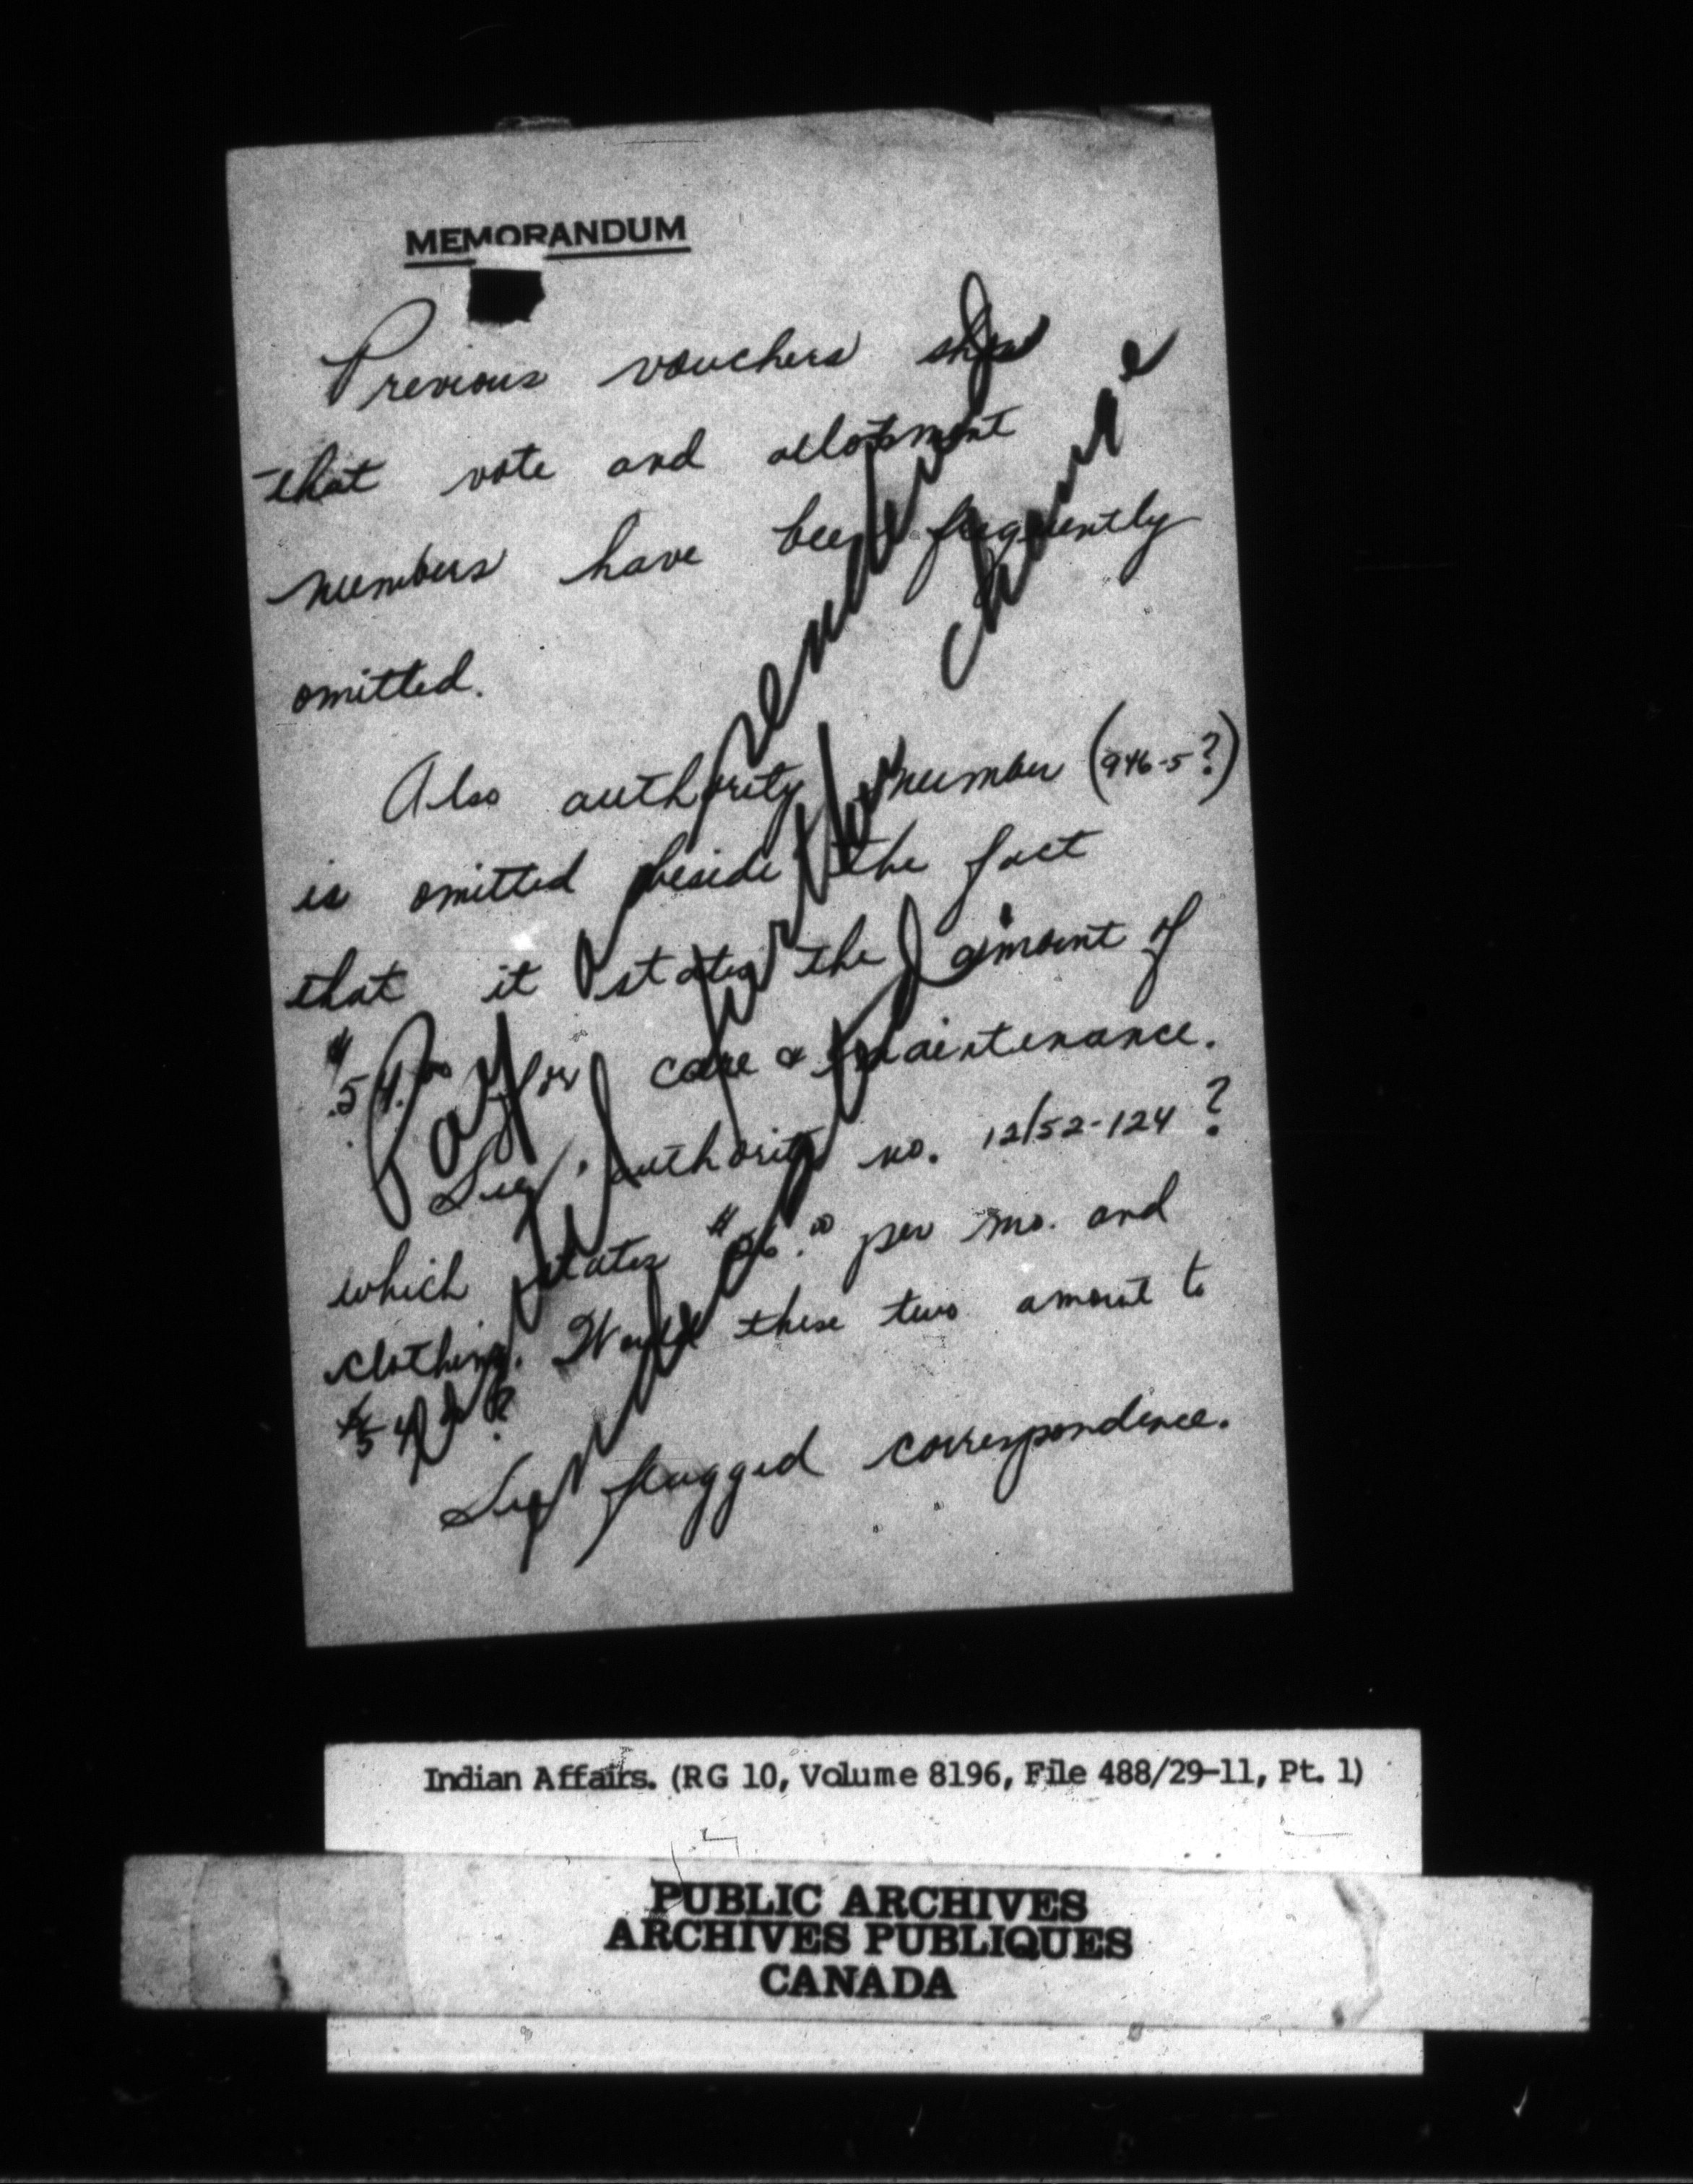 MEMORANDUM
Previous vouchers show
that vote and allotment
numbers have been frequently
omitted.
Also authority number (946-5?)
is omitted beside the fact
that it states the amount of
$54.00 for care & maintenance.
See authority no. 12/52-124?
which states per mo. and
clothing. Would these two amount to
$54.00?
See flagged correspondence.
Pay as rendered
until further
change
Indian Affairs. (RG 10, Volume 8196, File 488/29-11, Pt. 1)
PUBLIC ARCHIVES
ARCHIVES PUBLIQUES
CANADA